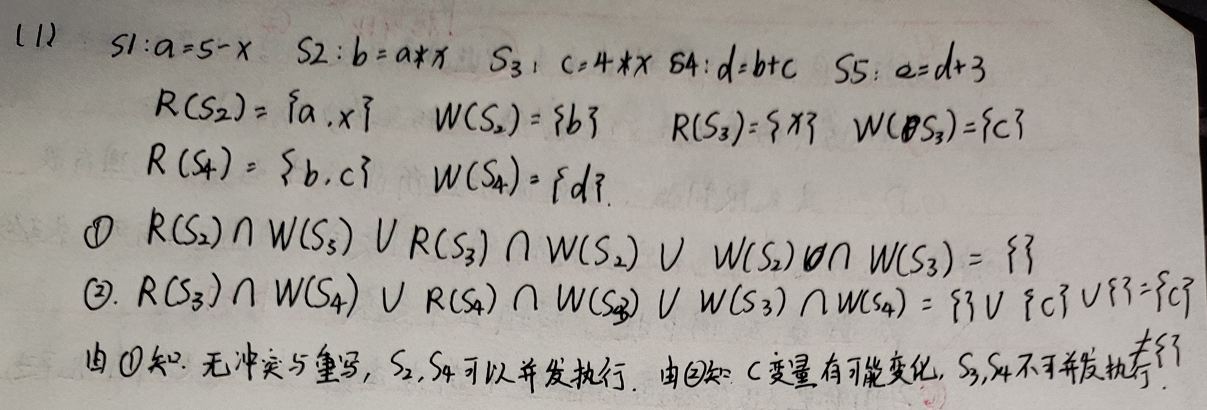 (1) S1:a=5-x S2:b=a*x S3: c=4*x S4:d=b+c S5: e=d+3
R(S2)={a,x} W(S2)={b} R(S3)={x} W(S3)={c}
R(S4)={b,c} W(S4)={d}.
① R(S2)∩W(S3)∪R(S3)∩W(S2)∪W(S2)∩W(S3)={}
②. R(S3)∩W(S4)∪R(S4)∩W(S3)∪W(S3)∩W(S4)={}∪{c}∪{}={c}
≠{}
由①知. 无冲突与重写, S2,S4可以并发执行. 由②知 C变量有可能变化, S3,S4不可并发执行.